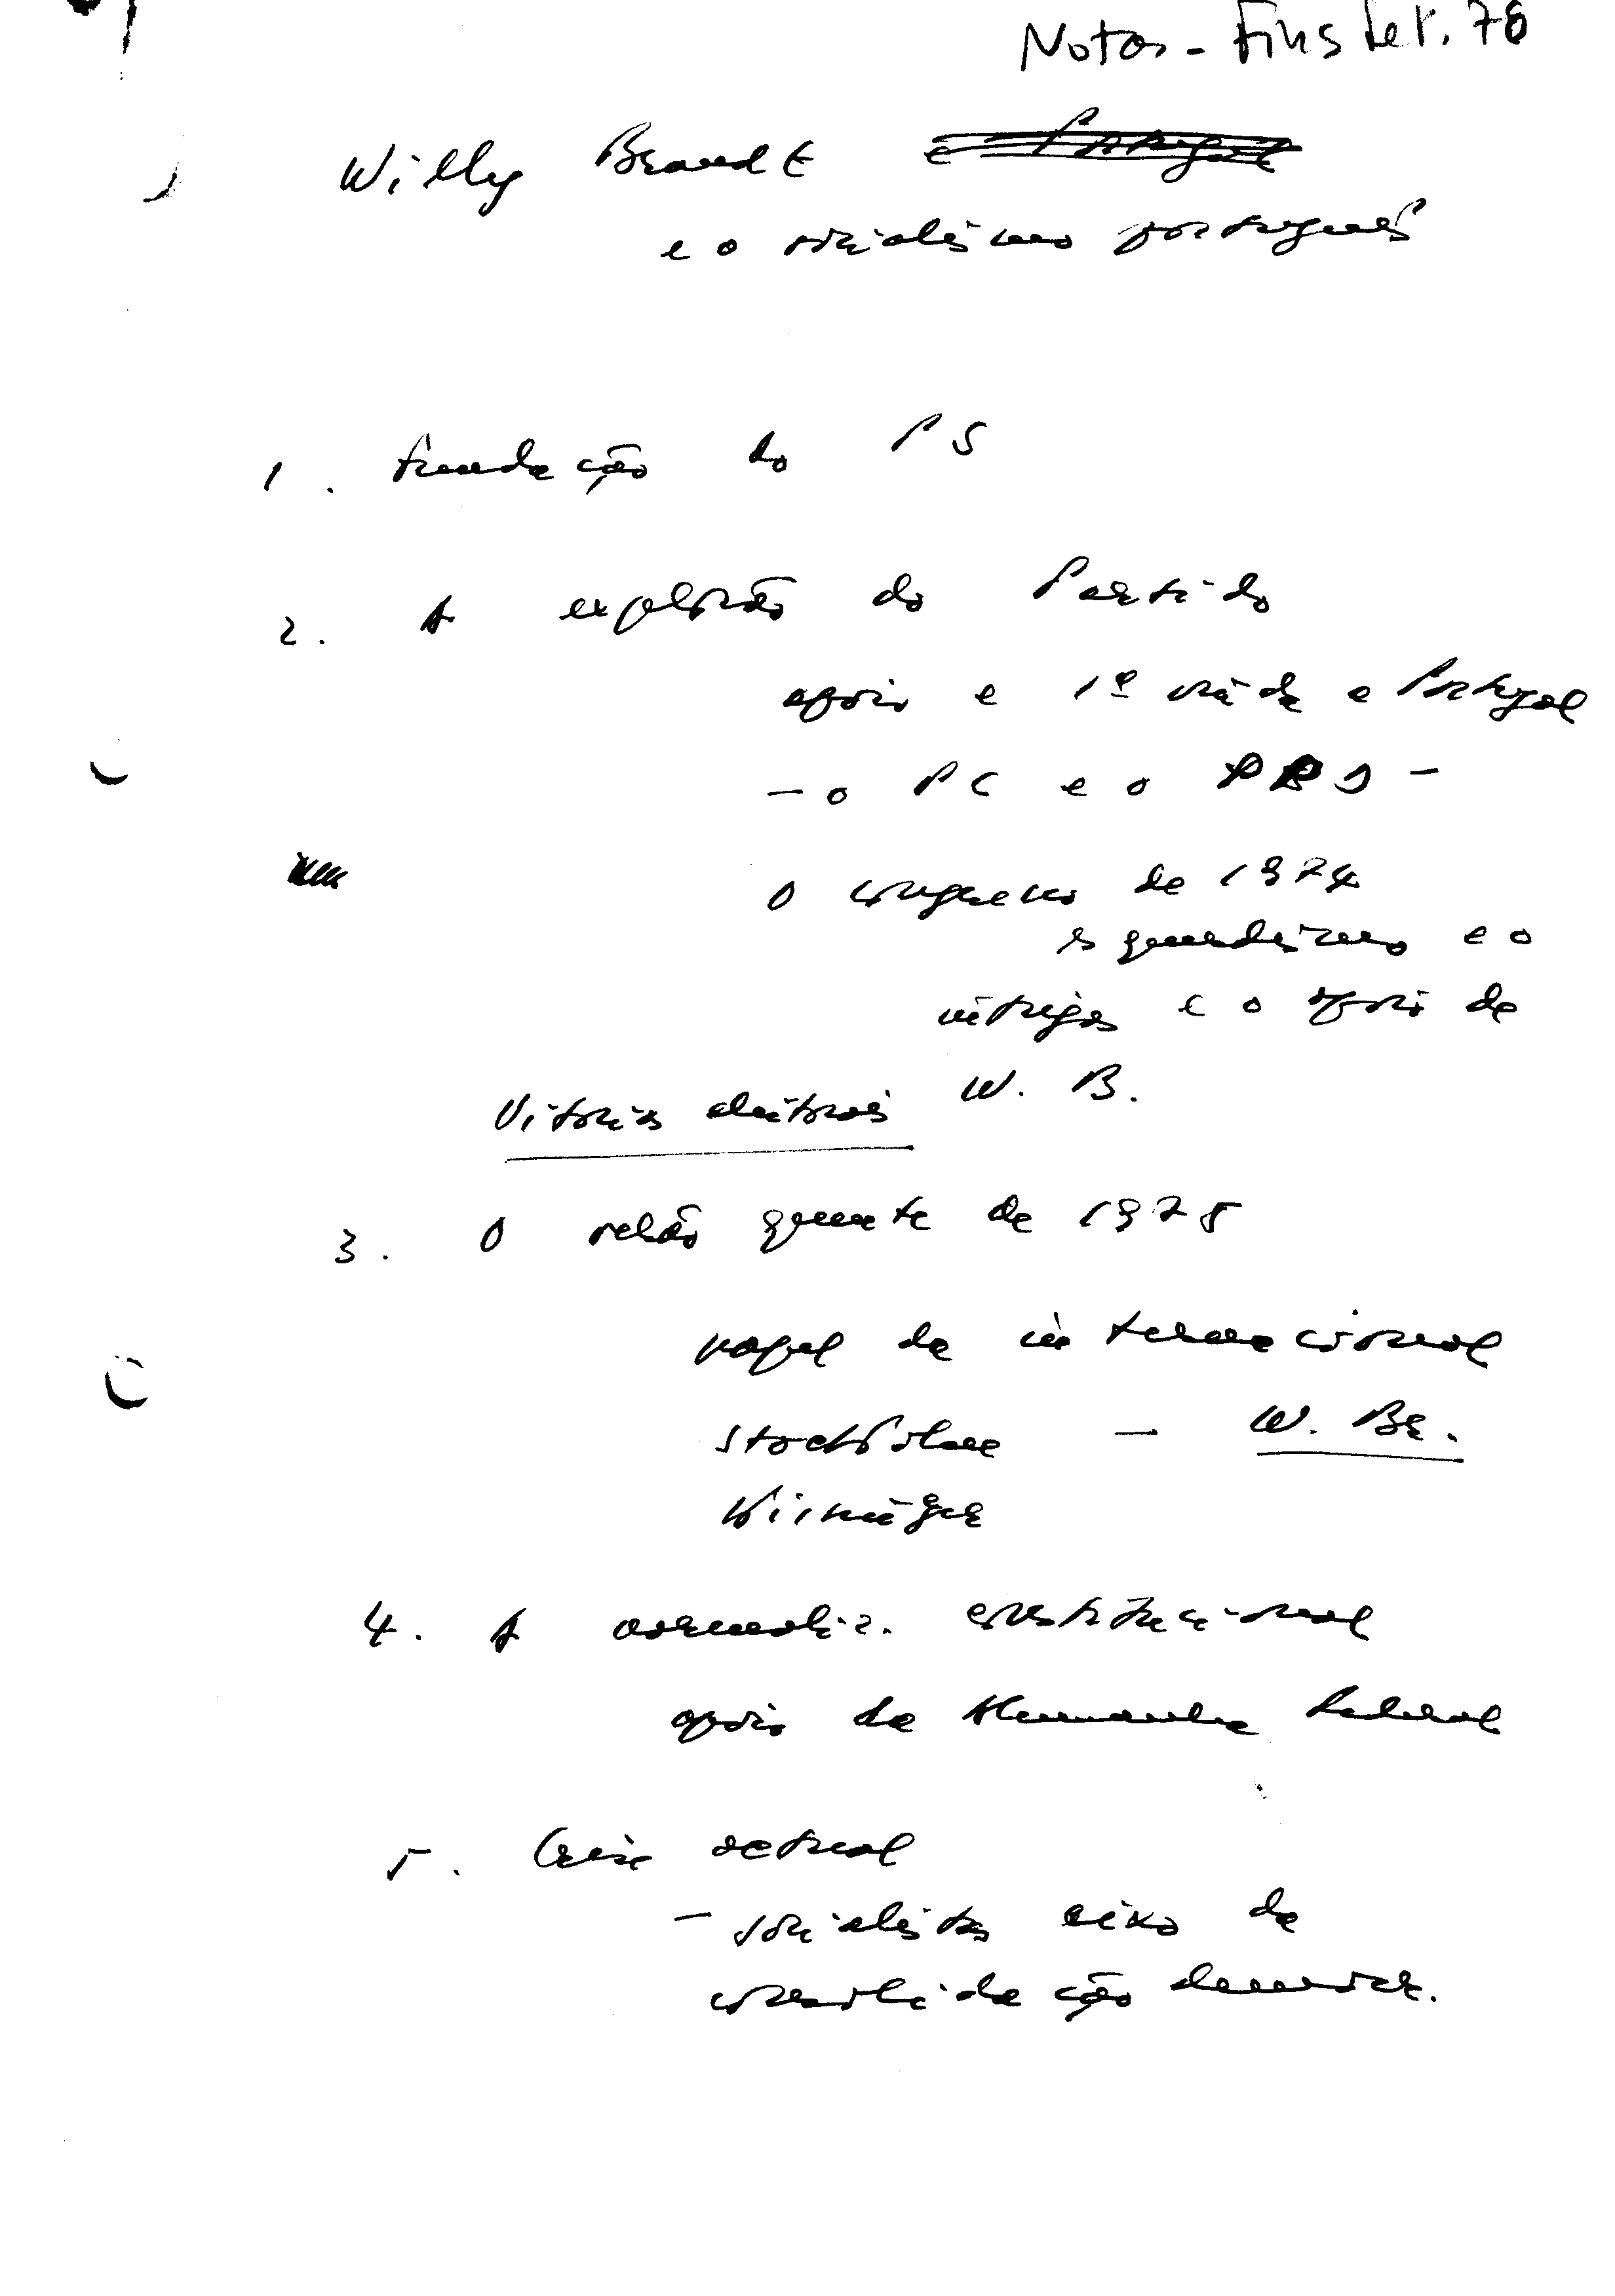 Notas - Fins Set. 78
Willy Brandt e Portugal
e o socialismo português
1. Fundação do PS
2. A explosão do Partido
apoio e 1ª vinda a Portugal
- o PC e o
O congresso de 1974
esquerdismo e o
intrigas e o apoio de
W. B.
Vitórias eleitorais
3. O verão quente de 1975
papel da internacional
Stockholme - W. Br.
4. A normaliz. constitucional
apoio da Alemanha Federal
5. Crise actual
- socialistas eixo da
consolidação democr.